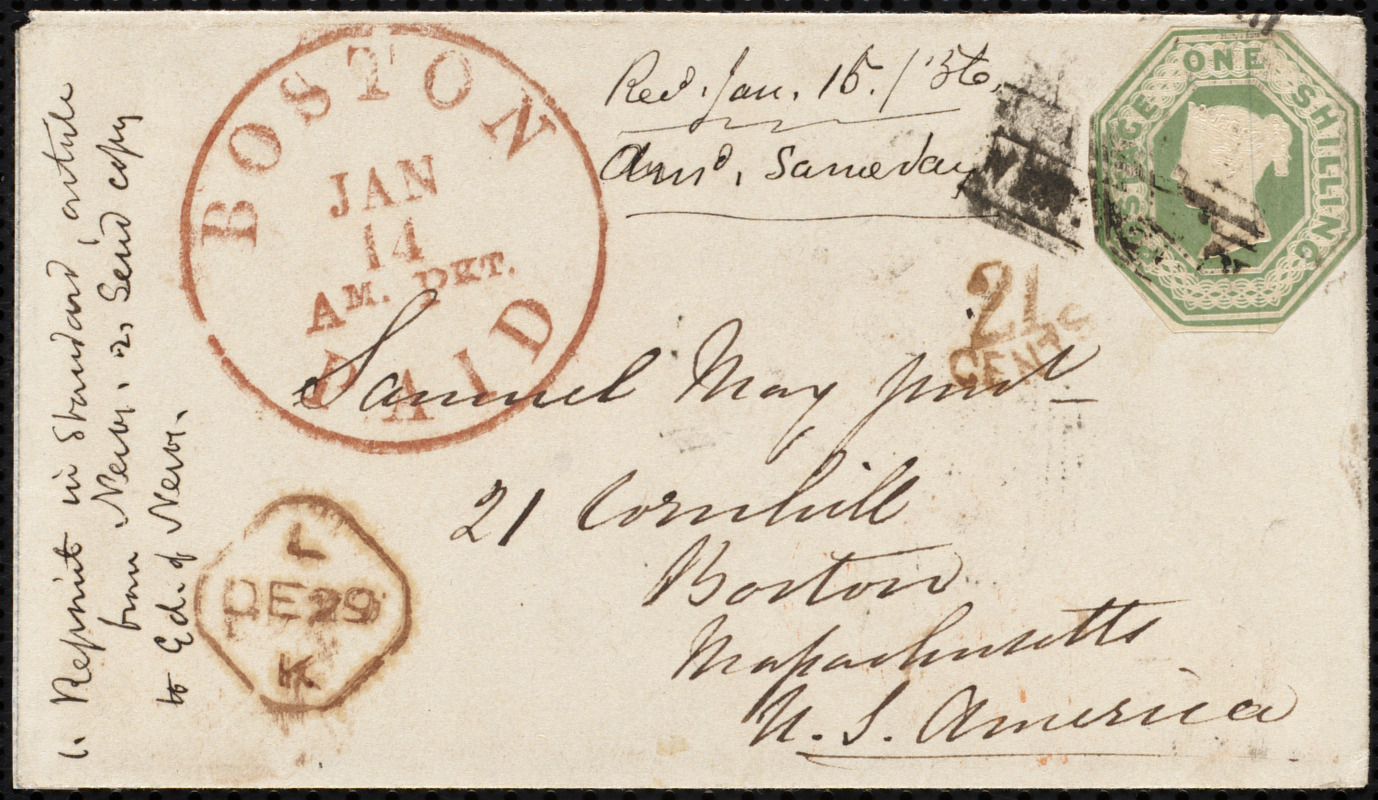 BOSTON
JAN
14
AM. PKT.
PAID
Recd. Jan. 15./'56.
Ansd. same day
ONE SHILLING
POSTAGE
21
CENTS
Samuel May junr
21 Cornhill
Boston
Massachusetts
U. S. America
L
DE 29
K
1. Reprint in Standard, article
from Nerv. 2. Send copy
to Ed. of Nerv.